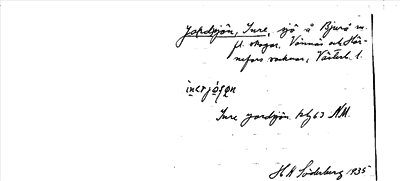 Jordsjön, Inre, sjö å Bjurå m.
fl. skogar, Vännäs och Hör-
nefors socknar, Västerb. l.
inerjósen
Inre jordsjön. klg 63 NM.
H N Söderberg 1935